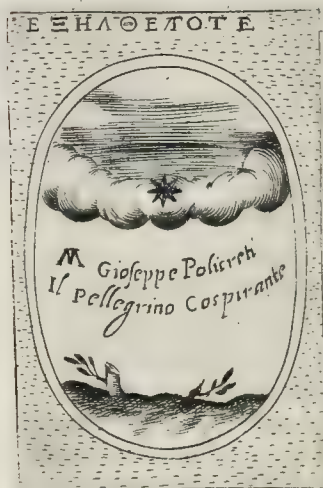 ΕΞΗΛΘΕΠΟΤΕ
M Gioseppe Policreti
Il Pellegrino Cospirante